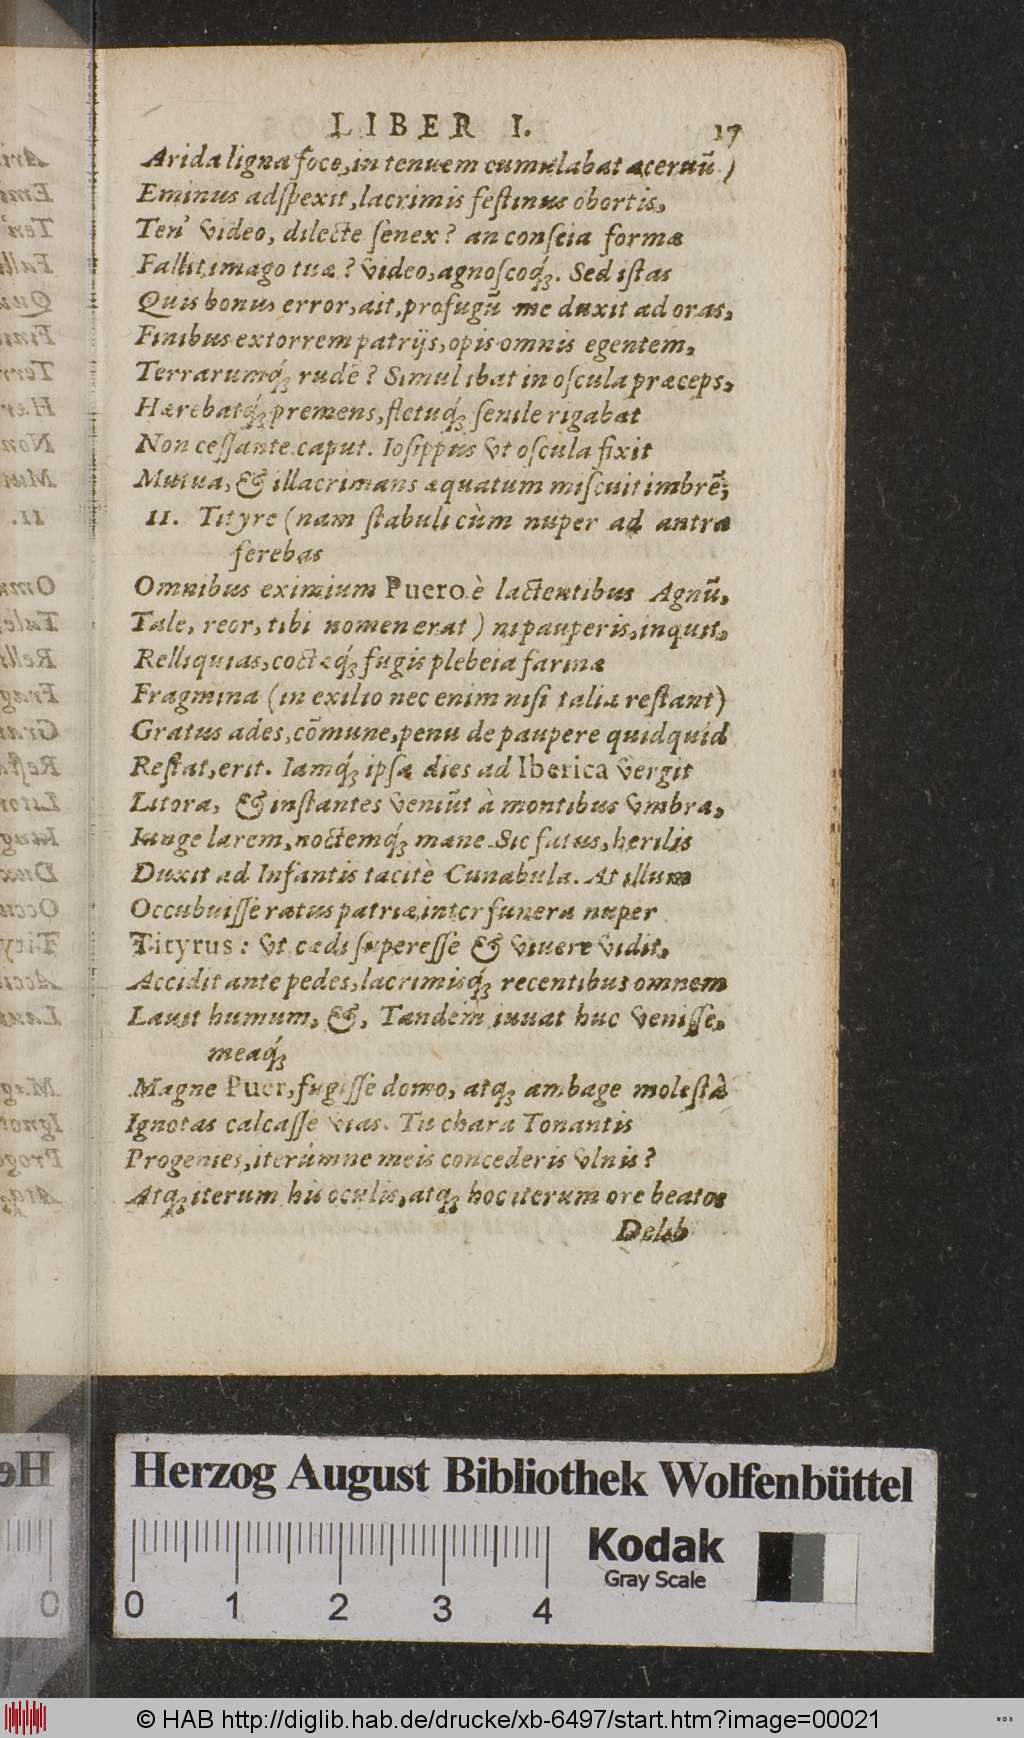 LIBER I. 17
Arida ligna foco, in tenuem cumulabat aceruū.)
Eminus adspexit, lacrimis festinus obortis,
Ten' video, dilecte senex? an conscia formæ
Fallit imago tuæ? video, agnoscoq́;. Sed istas
Quis bonus error, ait, profugū me duxit ad oras,
Finibus extorrem patrijs, opis omnis egentem,
Terrarumq́; rudē? Simul ibat in oscula præceps,
Hærebatq́; premens, fletuq́; senile rigabat
Non cessante caput. Iosippus vt oscula fixit
Mutua, & illacrimans æquatum miscuit imbrē;
II. Tityre (nam stabuli cùm nuper ad antra
ferebas
Omnibus eximium Puero è lactentibus Agnū,
Tale, reor, tibi nomen erat) ni pauperis, inquit,
Relliquias, coctæq́; fugis plebeia farinæ
Fragmina (in exilio nec enim nisi talia restant)
Gratus ades, cōmune, penu de paupere quidquid
Restat, erit. Iamq́; ipsa dies ad Iberica vergit
Litora, & instantes veniūt à montibus vmbræ,
Iunge larem, noctemq́; mane. Sic fatus, herilis
Duxit ad Infantis tacitè Cunabula. At illum
Occubuisse ratus patriæ inter funera nuper
Tityrus: vt cædi superesse & viuere vidit,
Accidit ante pedes, lacrimisq́; recentibus omnem
Lauit humum, &, Tandem iuuat huc venisse,
meaq́;
Magne Puer, fugisse domo, atq; ambage molestâ
Ignotas calcasse vias. Tu chara Tonantis
Progenies, iterúmne meis concederis vlnis?
Atq; iterum his oculis, atq; hoc iterum ore beatos
Delib
Herzog August Bibliothek Wolfenbüttel
Kodak
Gray Scale
0 1 2 3 4
© HAB http://diglib.hab.de/drucke/xb-6497/start.htm?image=00021